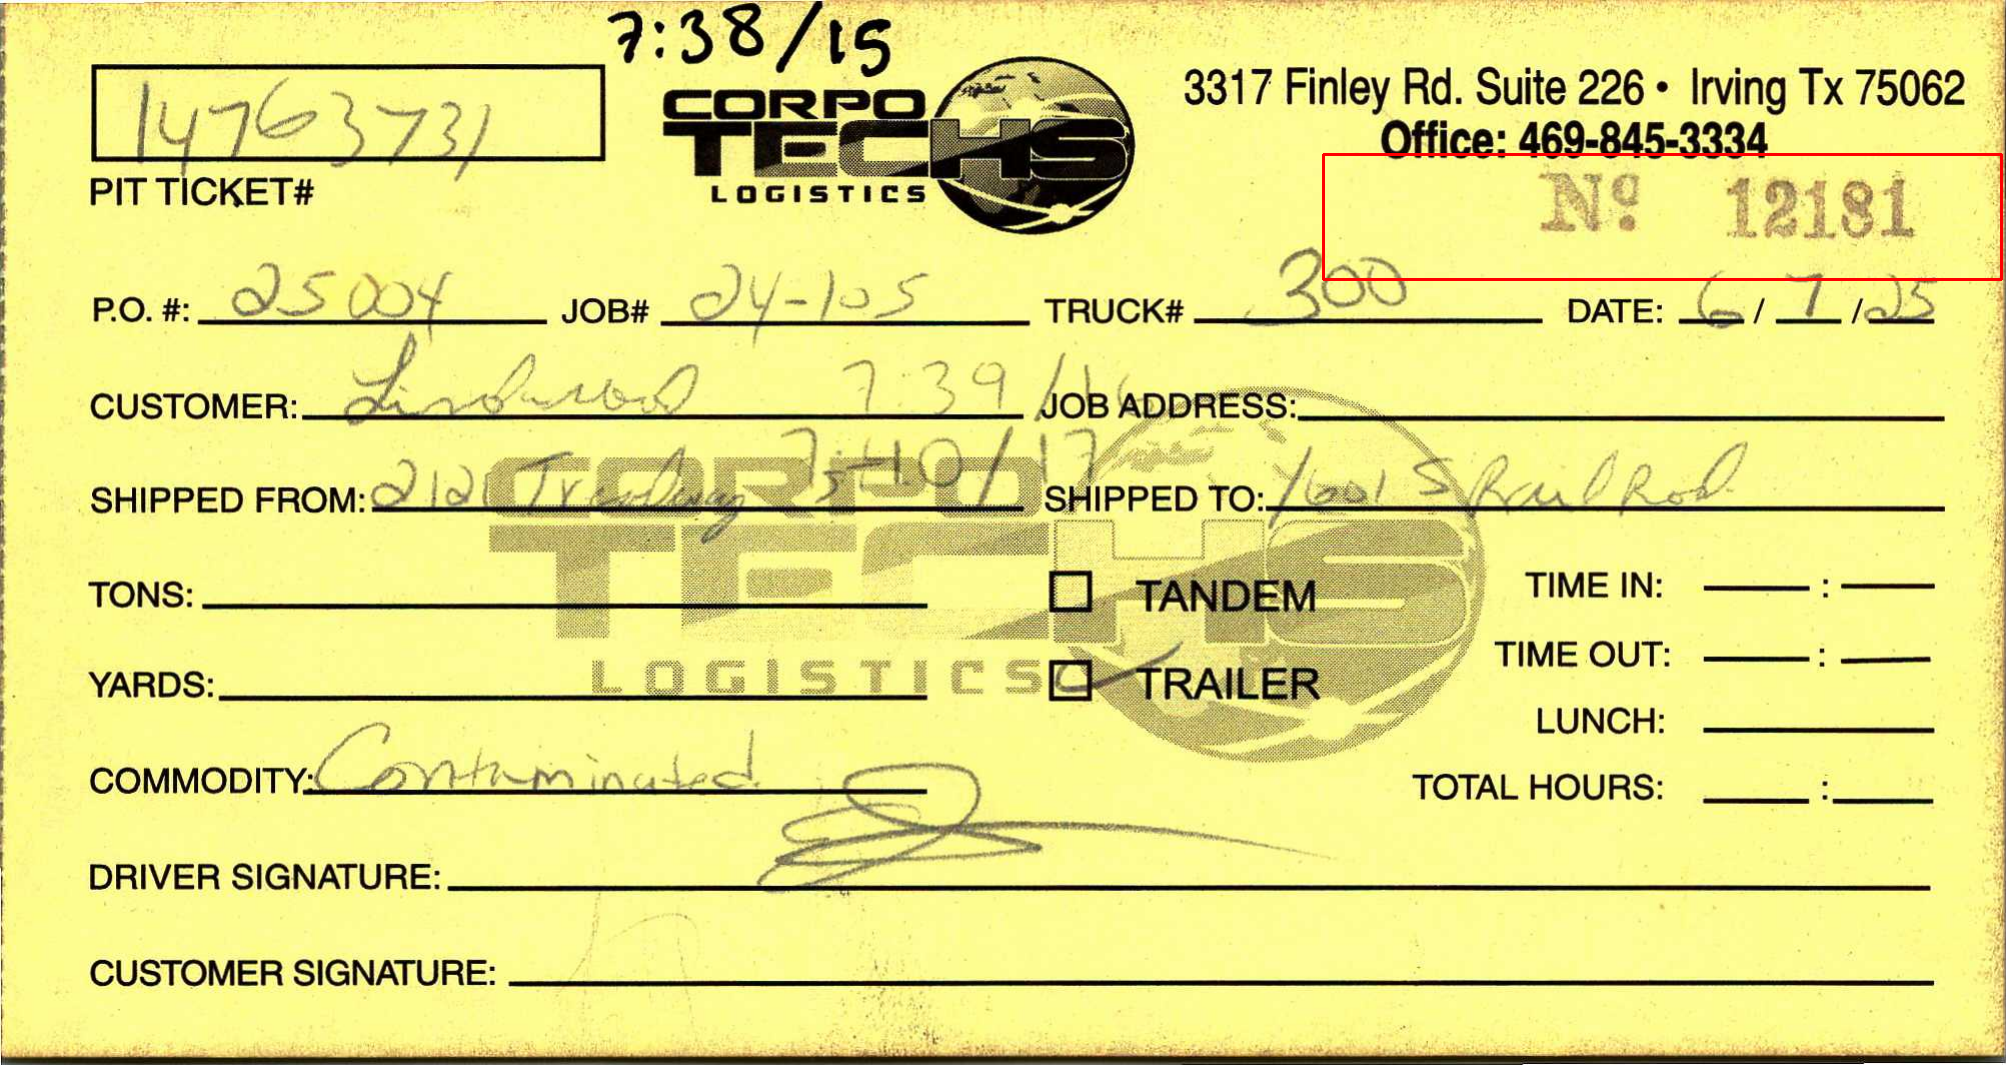 7:38/15
14763731
PIT TICKET#
CORPO
TECHS
LOGISTICS
3317 Finley Rd. Suite 226 • Irving Tx 75062
Office: 469-845-3334
Nº 12181
P.O. #: 25004 JOB# 24-105 TRUCK# 300 DATE: 6/7/25
CUSTOMER: 7:39/16 JOB ADDRESS:
SHIPPED FROM: 2121 7:40/17 SHIPPED TO: 1601 S Rail Rod
CORPO
TECHS
LOGISTICS
TONS: TANDEM TIME IN: :
YARDS: TRAILER TIME OUT: :
LUNCH:
COMMODITY: Contaminated TOTAL HOURS: :
DRIVER SIGNATURE:
CUSTOMER SIGNATURE: